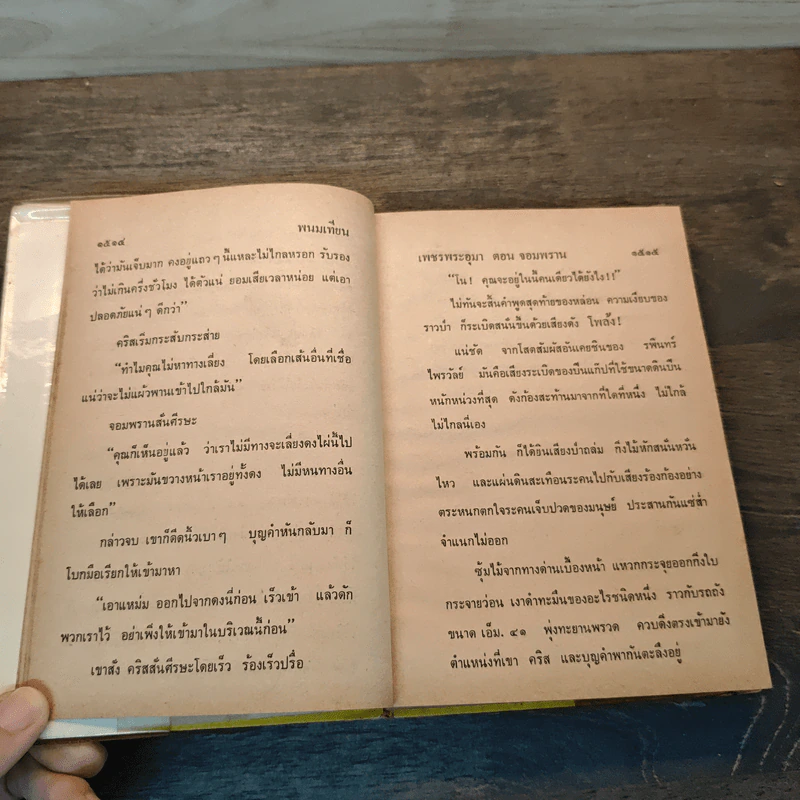 ๑๕๑๔ พนมเทียน
ได้ว่ามันเจ็บมาก คงอยู่แถว ๆ นี้แหละไม่ไกลหรอก รับรอง
ว่าไม่เกินครึ่งชั่วโมง ได้ตัวแน่ ยอมเสียเวลาหน่อย แต่เอา
ปลอดภัยแน่ ๆ ดีกว่า”
คริสเริ่มกระสับกระส่าย
“ทำไมคุณไม่หาทางเลี่ยง โดยเลือกเส้นอื่นที่เชื่อ
แน่ว่าจะไม่แผ้วพานเข้าไปใกล้มัน”
จอมพรานสั่นศีรษะ
“คุณก็เห็นอยู่แล้ว ว่าเราไม่มีทางจะเลี่ยงดงไผ่นี้ไป
ได้เลย เพราะมันขวางหน้าเราอยู่ทั้งดง ไม่มีหนทางอื่น
ให้เลือก”
กล่าวจบ เขาก็ดีดนิ้วเบา ๆ บุญคำหันกลับมา ก็
โบกมือเรียกให้เข้ามาหา
“เอาแหม่ม ออกไปจากดงนี่ก่อน เร็วเข้า แล้วดัก
พวกเราไว้ อย่าเพิ่งให้เข้ามาในบริเวณนี้ก่อน”
เขาสั่ง คริสสั่นศีรษะโดยเร็ว ร้องเร็วปรื๋อ
เพชรพระอุมา ตอน จอมพราน ๑๕๑๕
“โน! คุณจะอยู่ในนี้คนเดียวได้ยังไง!!”
ไม่ทันจะสิ้นคำพูดสุดท้ายของหล่อน ความเงียบของ
ราวป่า ก็ระเบิดสนั่นขึ้นด้วยเสียงดัง โพล้ง!
แน่ชัด จากโสตสัมผัสอันเคยชินของ รพินทร์
ไพรวัลย์ มันคือเสียงระเบิดของปืนแก๊ปที่ใช้ขนาดดินปืน
หนักหน่วงที่สุด ดังก้องสะท้านมาจากที่ใดที่หนึ่ง ไม่ใกล้
ไม่ไกลนี่เอง
พร้อมกัน ก็ได้ยินเสียงป่าถล่ม กิ่งไม้หักสนั่นหวั่น
ไหว และแผ่นดินสะเทือนระคนไปกับเสียงร้องก้องอย่าง
ตระหนกตกใจระคนเจ็บปวดของมนุษย์ ประสานกันแซ่ส่ำ
จำแนกไม่ออก
ซุ้มไม้จากทางด่านเบื้องหน้า แหวกกระจุยออกกิ่งใบ
กระจายว่อน เงาดำทะมึนของอะไรชนิดหนึ่ง ราวกับรถถัง
ขนาด เอ็ม. ๔๑ พุ่งทะยานพรวด ควบดิ่งตรงเข้ามายัง
ตำแหน่งที่เขา คริส และบุญคำพากันตะลึงอยู่